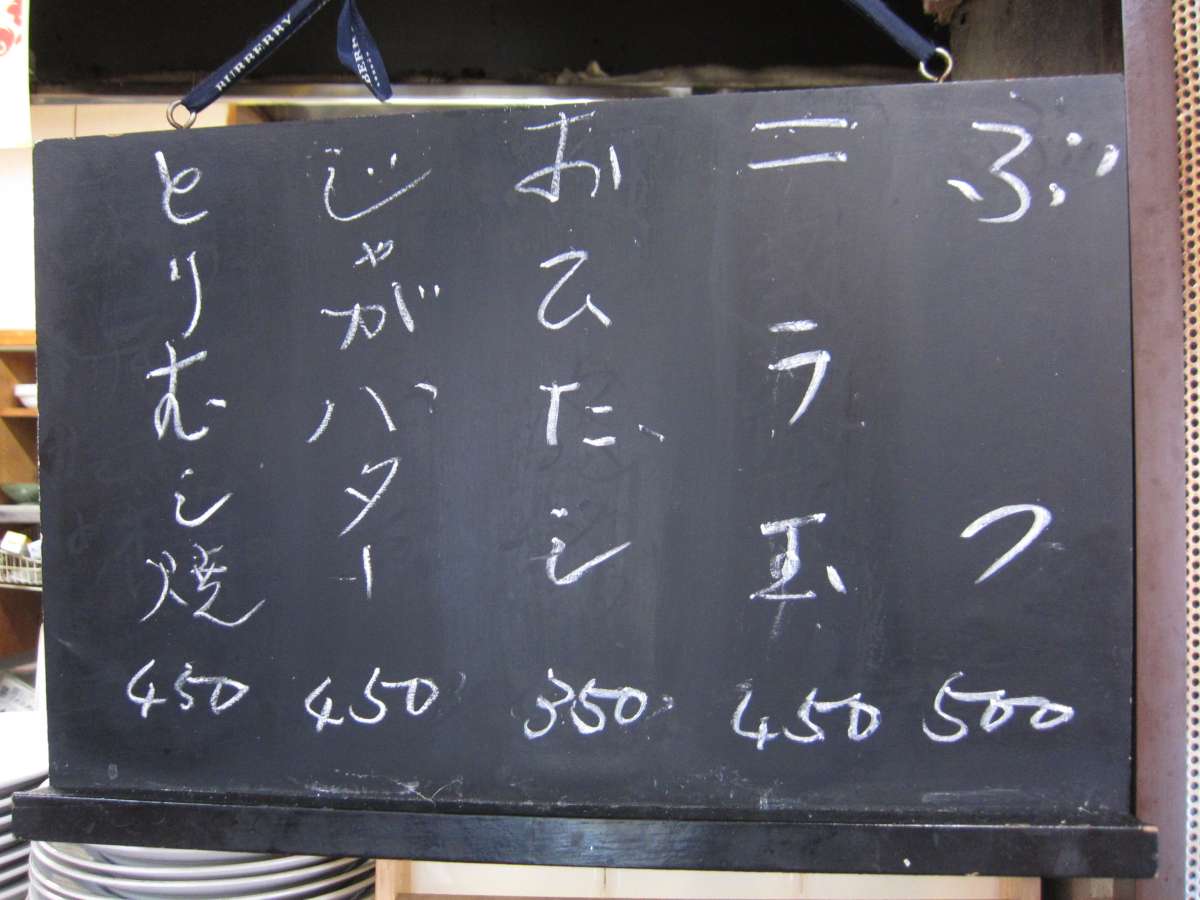 BURBERRY
ぶつ 500
ニラ玉 450
おひたし 350
じゃがバター 450
とりむし焼 450